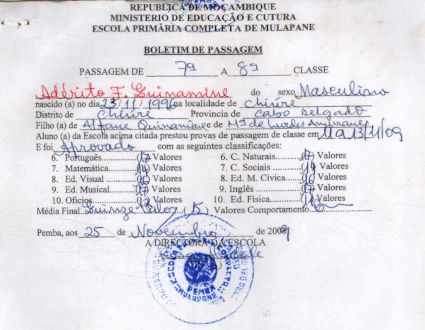 REPUBLICA DE MOÇAMBIQUE
MINISTERIO DE EDUCAÇÃO E CUTURA
ESCOLA PRIMÁRIA COMPLETA DE MULAPANE
BOLETIM DE PASSAGEM
PASSAGEM DE 7ª A 8ª CLASSE
Adérito F. Quinamine do sexo Masculino
nascido (a) no dia 23/11/1996 na localidade de chiúre
Distrito de Chiúre Provincia de Cabo Delgado
Filho (a) de Quinamine de Mª de Lurdes
Aluno (a) da Escola acima citada prestou provas de passagem de classe em 11 a 13/11/09
E foi Aprovado com as seguintes classificações:
6. Português Valores 6. C. Naturais Valores
7. Matemática Valores 7. C. Sociais Valores
8. Ed. Visual Valores 8. Ed. M. Civica Valores
9. Ed. Musical Valores 9. Inglês Valores
10. Oficios Valores 10. Ed. Fisica Valores
Média Final (15) Valores Comportamento
Pemba, aos 25 de Novembro de 2009
A DIRECTORA DA ESCOLA
ESCOLA PRIMÁRIA COMPLETA
PEMBA
MULAPANE